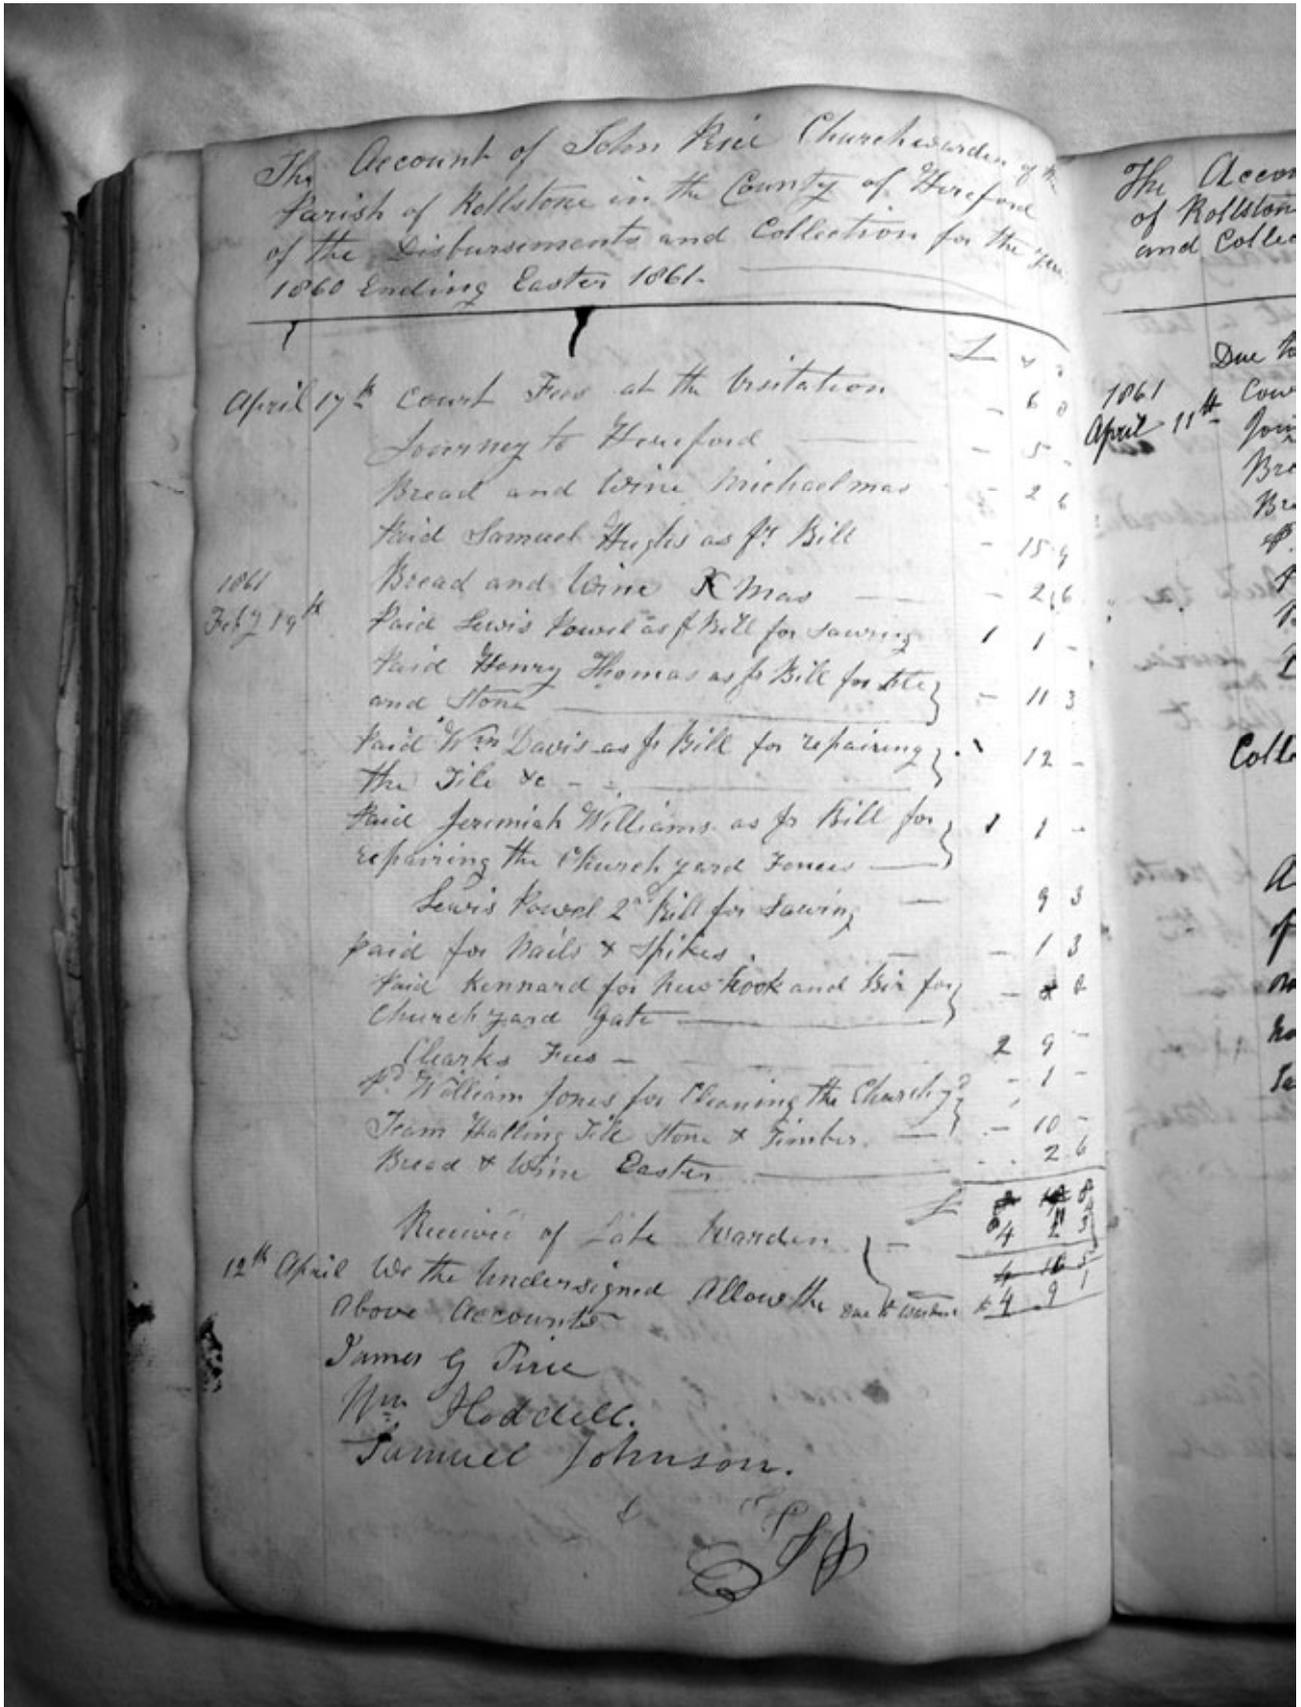 The Account of John Price Churchwarden of the
Parish of Rollstone in the County of Hereford
of the Disbursements and Collection for the Year
1860 Ending Easter 1861.
£ s d
April 17th Court Fees at the Visitation - 6 8
Journey to Hereford - 5 -
Bread and Wine Michaelmas - 2 6
Paid Samuel Hughs as pr Bill - 15 9
1861 Bread and Wine X Mas - 2 6
Feby 19th Paid Lewis Powel as pr Bill for Sawing 1 1 -
Paid Henry Thomas as pr Bill for tile
and Stone - 11 3
Paid Wm Davis as pr Bill for repairing
the Tile &c - 12 -
Paid Jeremiah Williams as pr Bill for
repairing the Church yard Fences 1 1 -
Lewis Powel 2nd Bill for Sawing - 9 3
paid for Nails & Spikes - 1 3
Paid Kennard for New Hook and for
Church yard Gate
Clearks Fees - 2 9 -
Pd William Jones for Cleaning the Church - 1 -
Team Halling Tile Stone & Timber - 10 -
Bread & Wine Easter 2 6
£ 8
Received of Late Warden 4 2 3
12th April We the Undersigned Allow the Due to Warden £4 9 1
above Accounts
James G Price
Wm Hoddell.
Samuel Johnson.
The Accoun
of Rollston
and Collec
Due to
1861 Cour
April 11th Jour
Bre
Bre
Colle